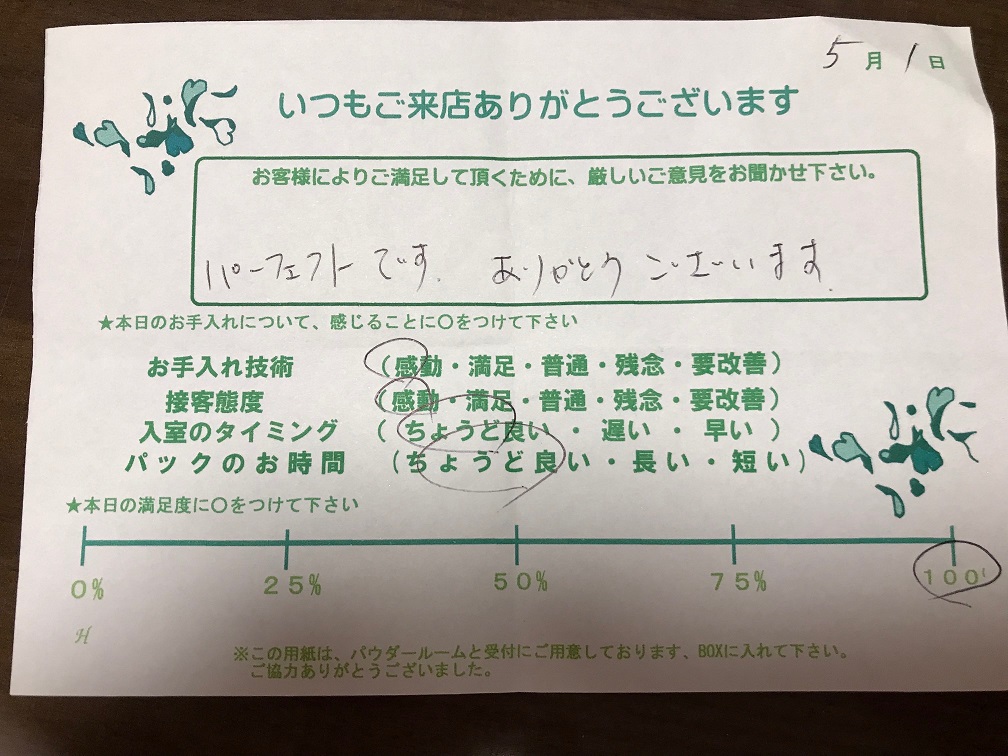 5月1日
いつもご来店ありがとうございます
お客様によりご満足して頂くために、厳しいご意見をお聞かせ下さい。
パーフェクトです. ありがとうございます.
★本日のお手入れについて、感じることに〇をつけて下さい
お手入れ技術 （感動・満足・普通・残念・要改善）
接客態度 （感動・満足・普通・残念・要改善）
入室のタイミング （ちょうど良い・遅い・早い）
パックのお時間 （ちょうど良い・長い・短い）
★本日の満足度に〇をつけて下さい
0% 25% 50% 75% 100
H
※この用紙は、パウダールームと受付にご用意しております、BOXに入れて下さい。
ご協力ありがとうございました。